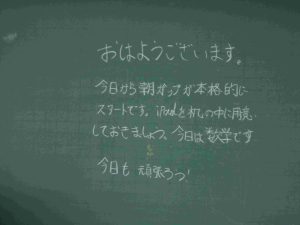 おはようございます。
今日から朝カップが本格的に
スタートです。iPadを机の中に用意
しておきましょう、今日は数学です
今日も頑張ろう!